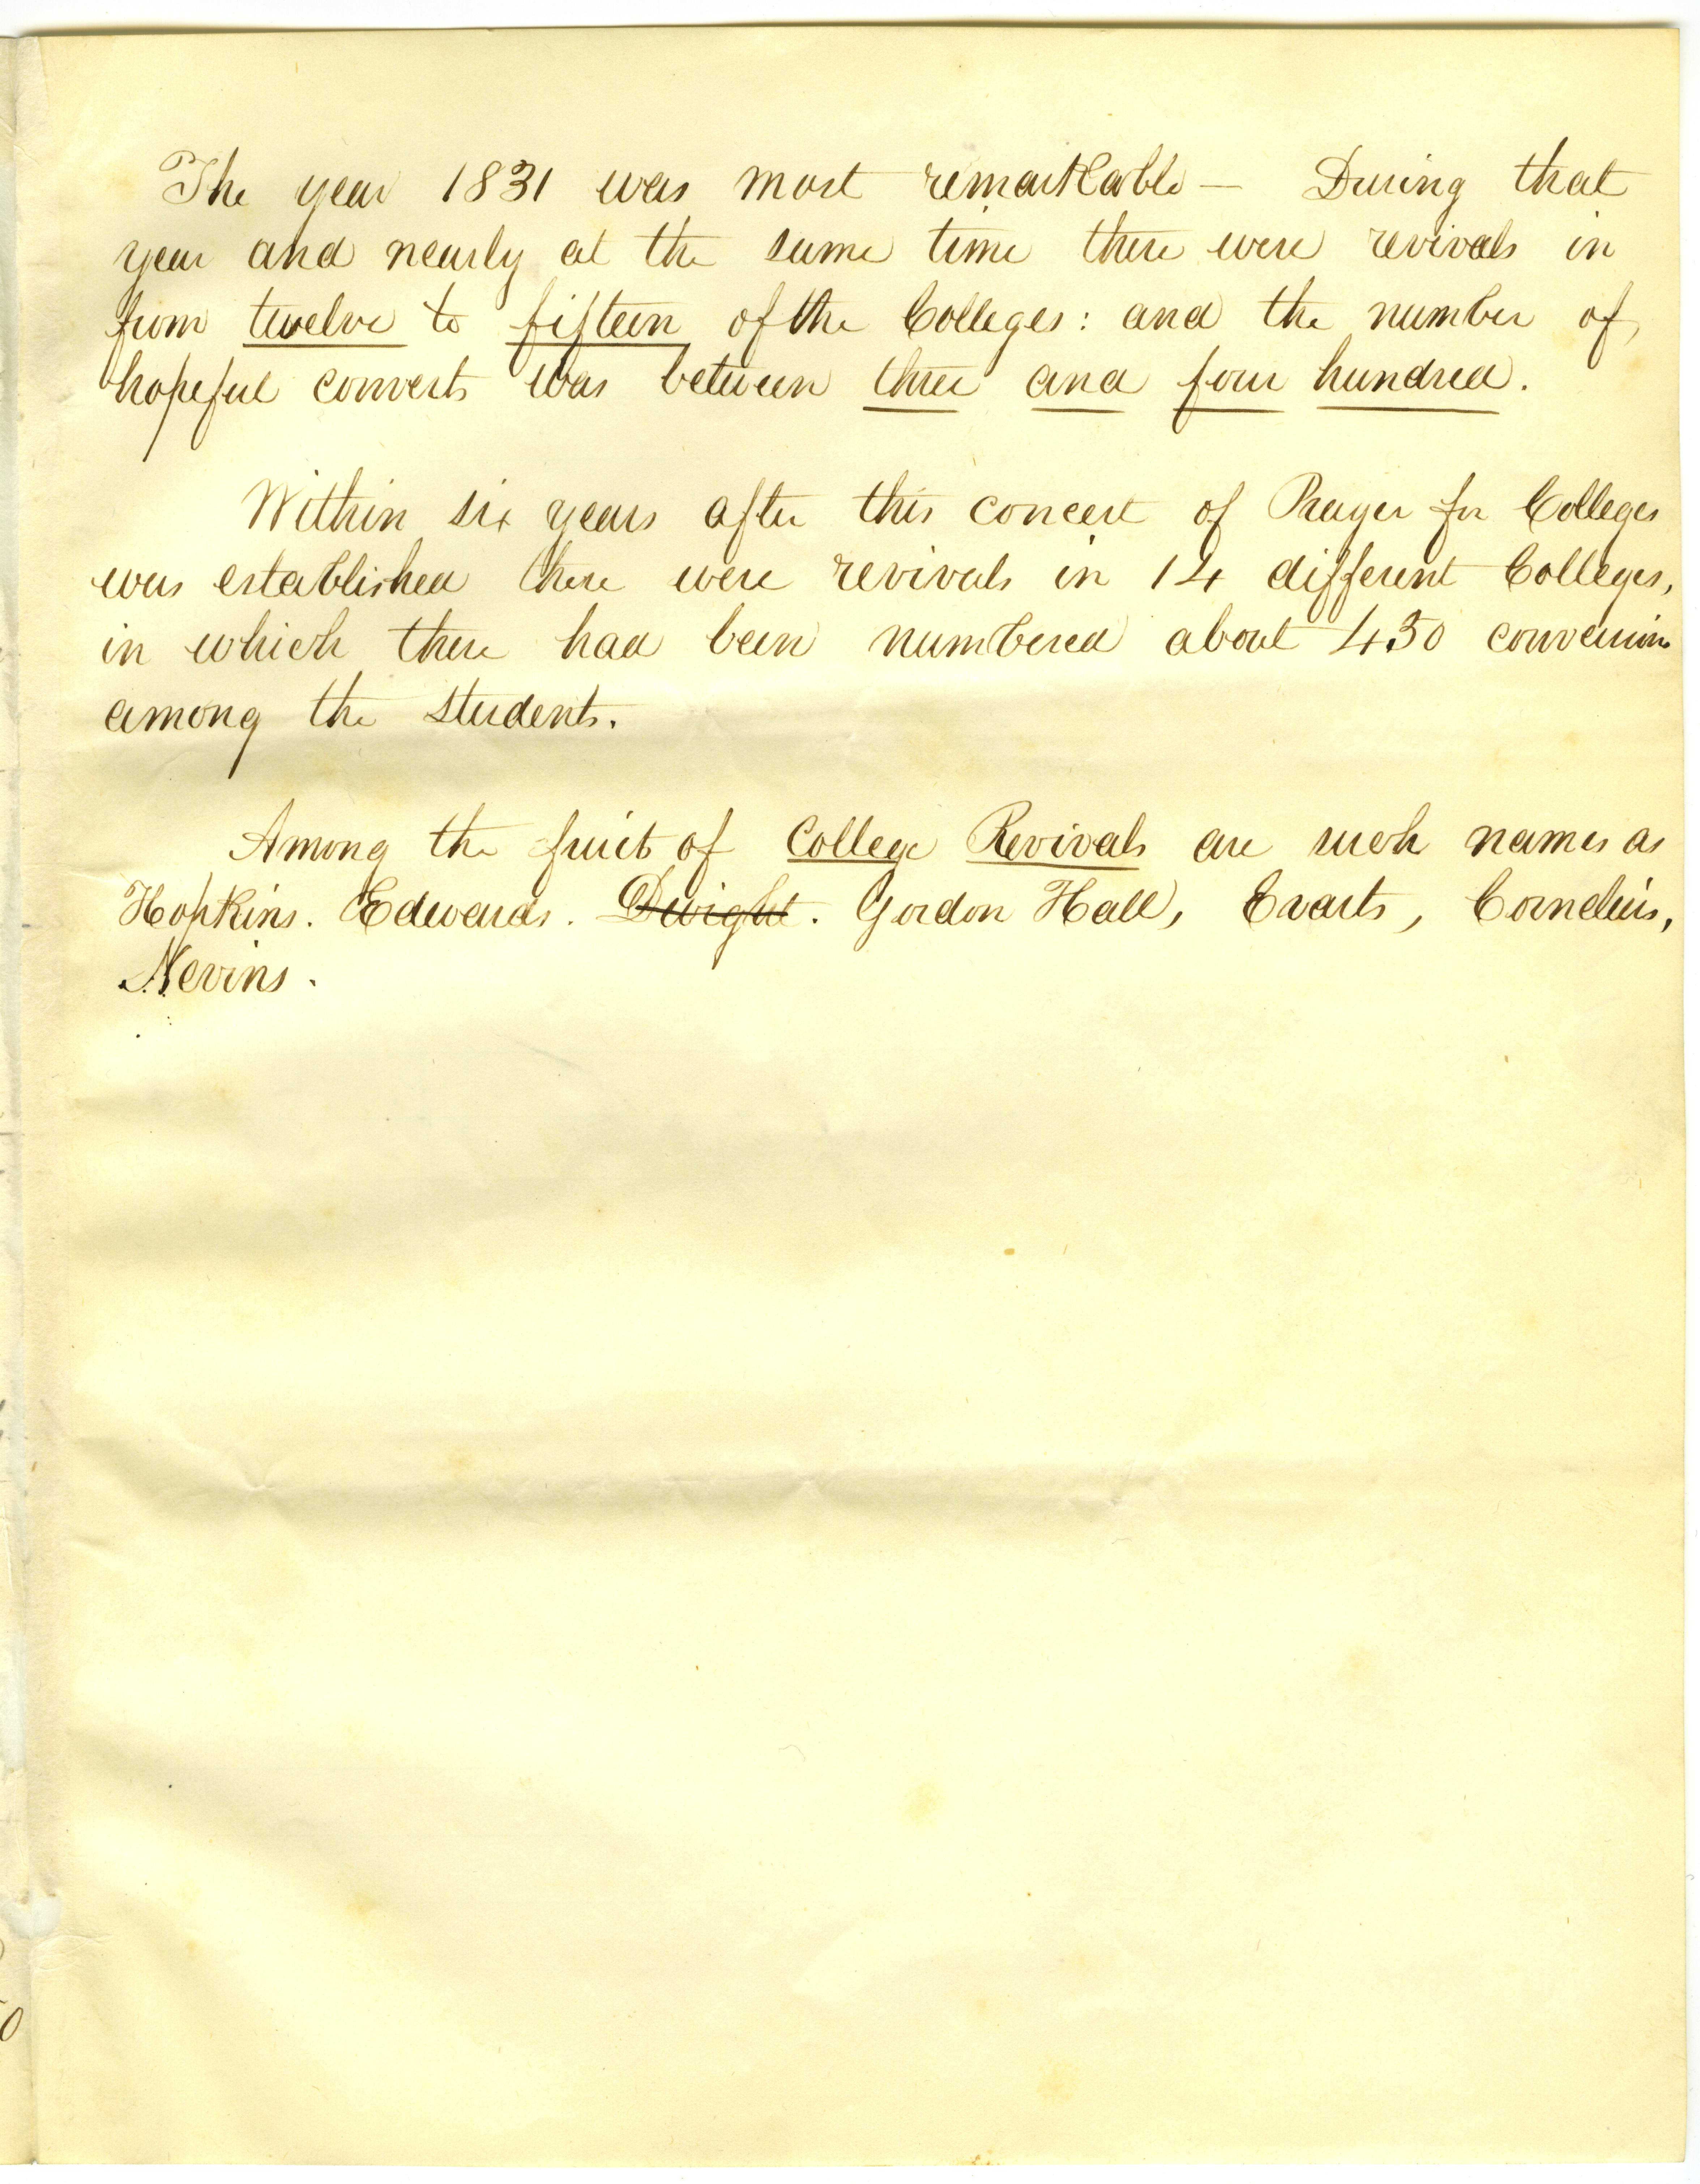 The year 1831 was most remarkable — During that
year and nearly at the same time there were revivals in
from twelve to fifteen of the Colleges: and the number of
hopeful converts was between three and four hundred.
Within six years after this concert of Prayer for Colleges
was established there were revivals in 14 different Colleges,
in which there had been numbered about 430 conversions
among the students.
Among the fruit of College Revivals are such names as
Hopkins. Edwards. Dwight. Gordon Hall, Evarts, Cornelius,
Nevins.